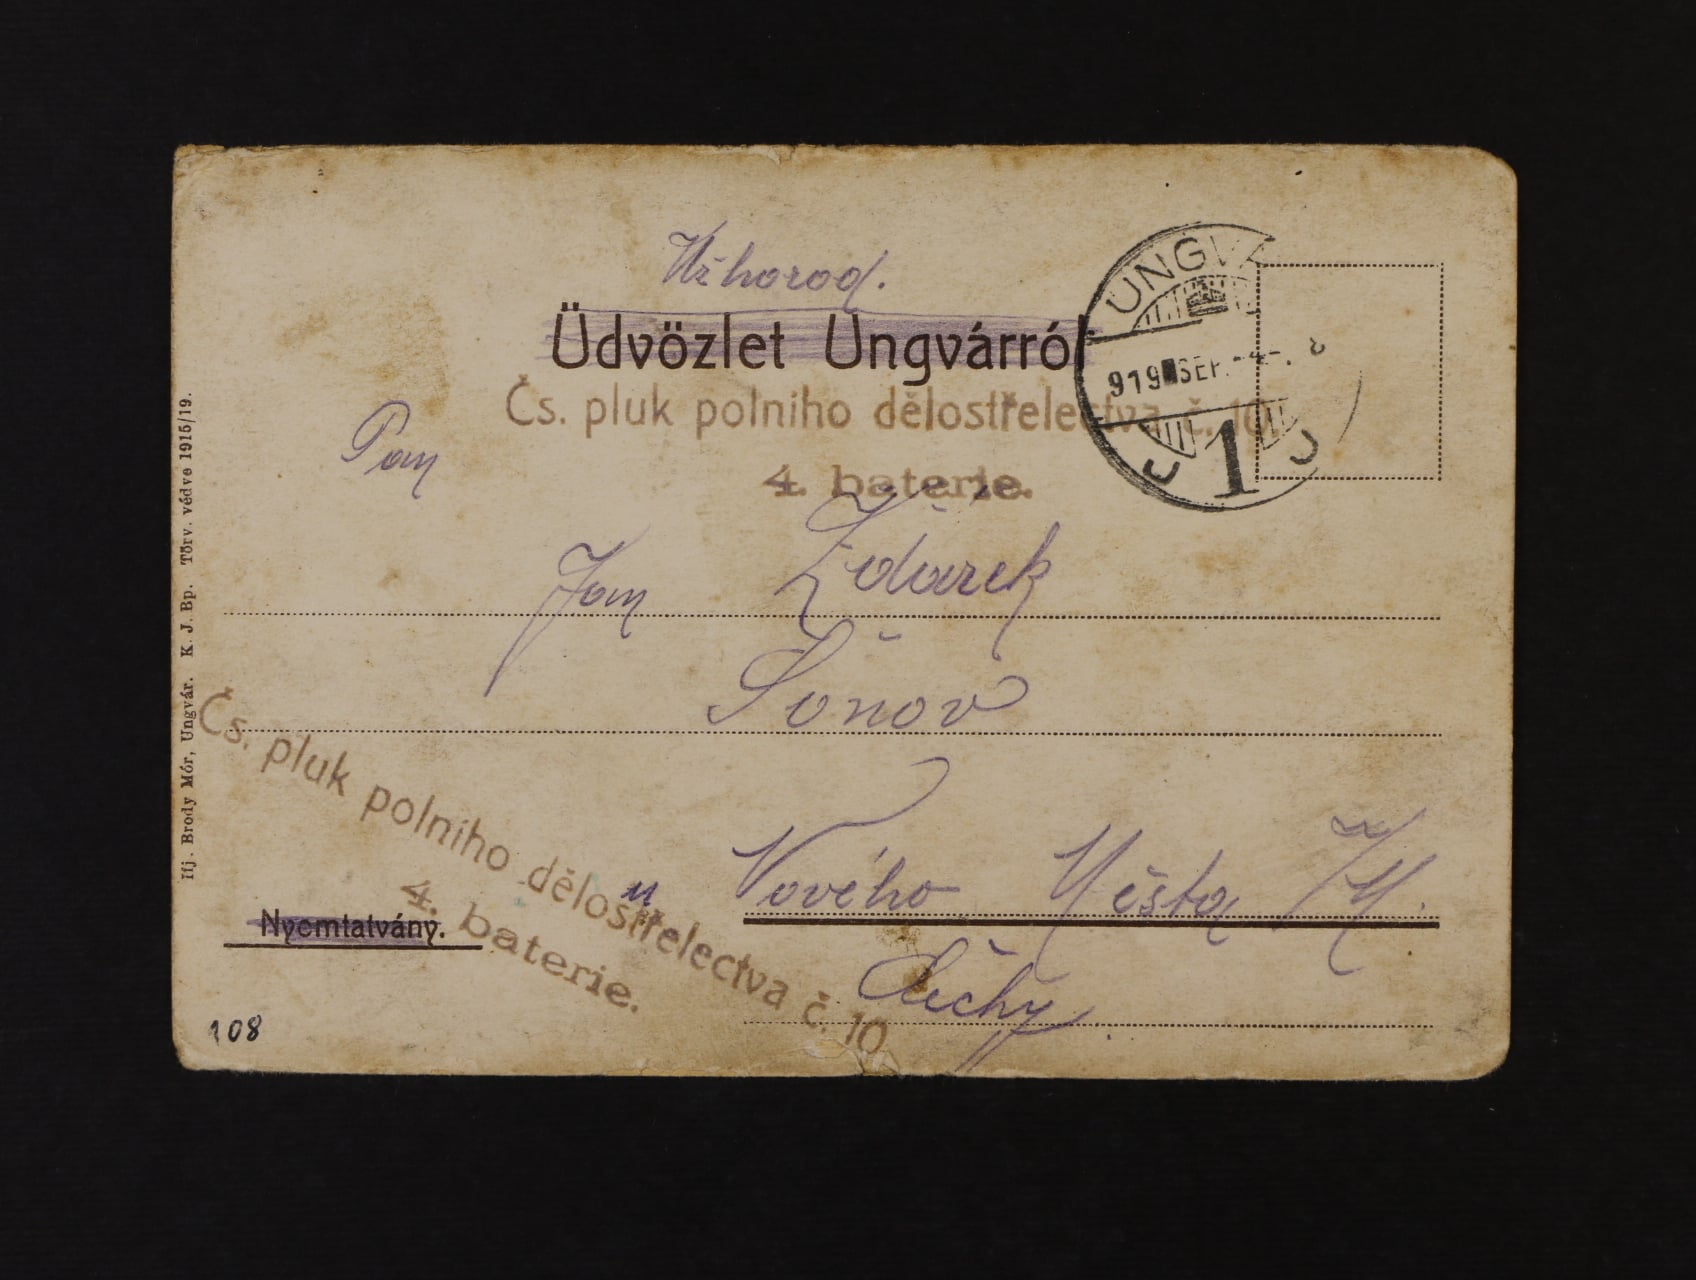 Užhorod.
Üdvözlet Ungvárról
UNGV
919 SEP. -4-. 8
1
Čs. pluk polniho dělostřelectva č. 10.
4. baterie.
Pan
Jan Žďárek
Šonov
u Nového Města /M.
Čechy
Čs. pluk polniho dělostřelectva č. 10
4. baterie.
Nyomtatvány.
108
Ifj. Brody Mór, Ungvár. K. J. Bp. Törv. védve 1915/19.